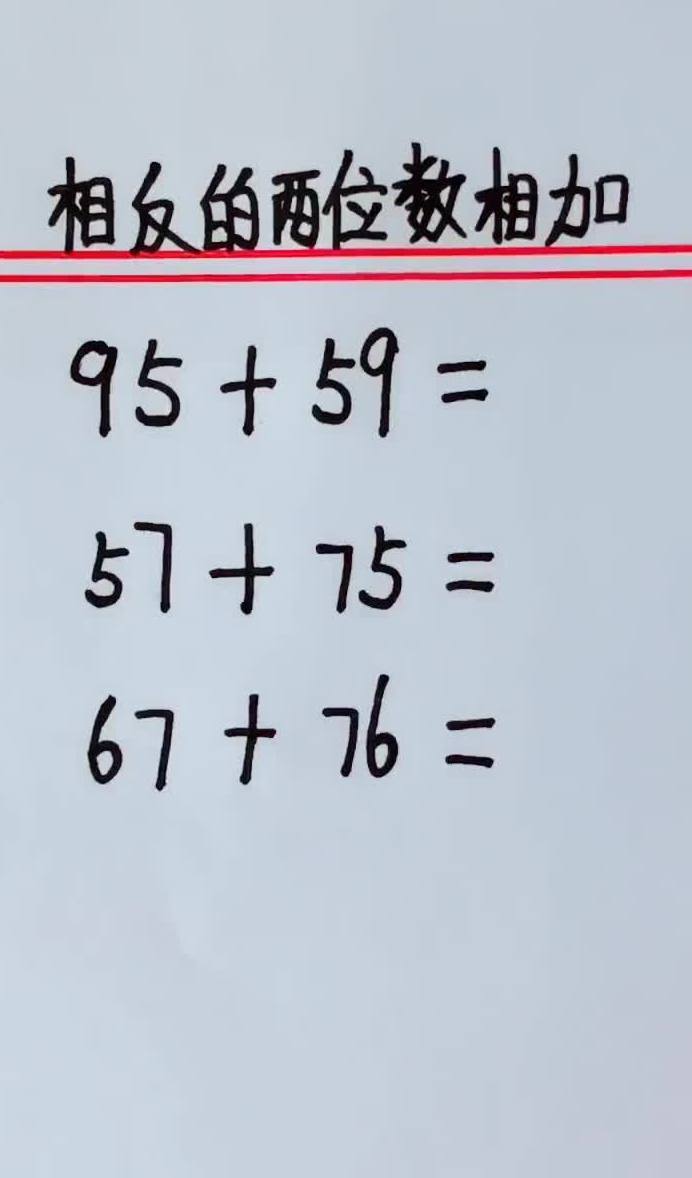 相反的两位数相加
95 + 59 =
57 + 75 =
67 + 76 =